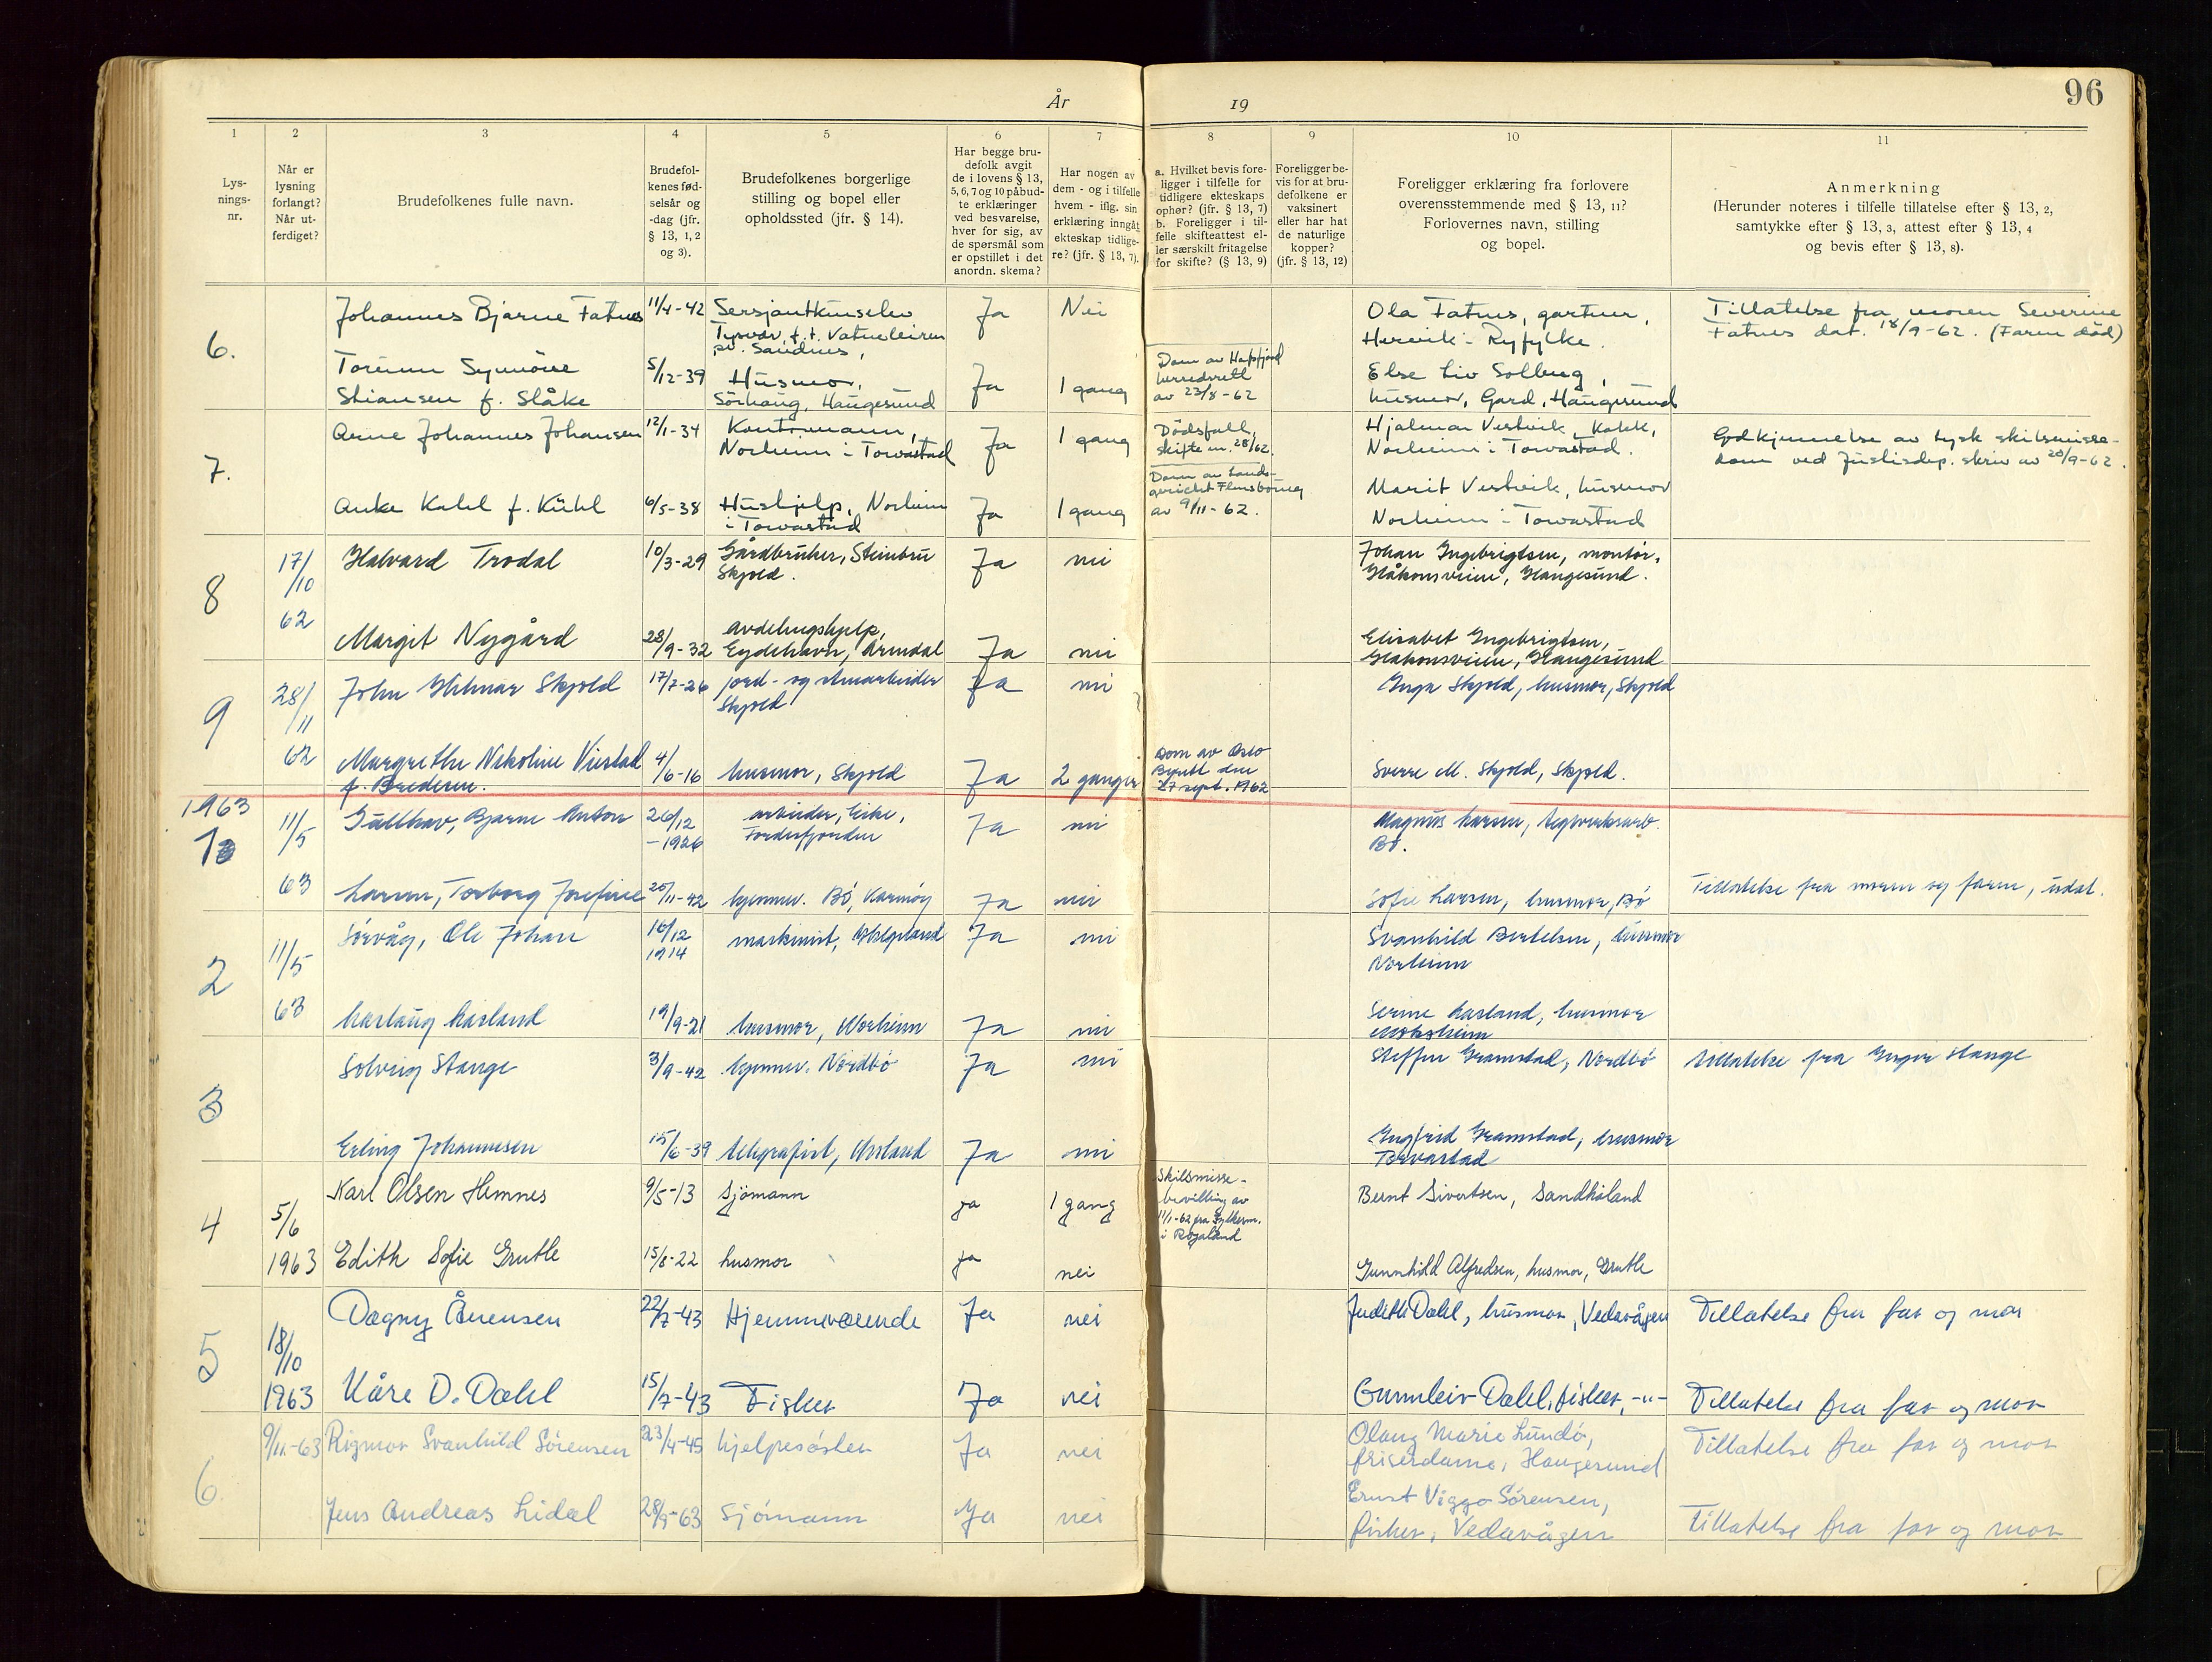 År 19
96
1 2 3 4 5 6 7 8 9 10 11
Lys-
nings-
nr.
Når er
lysning
forlangt?
Når ut-
ferdiget?
Brudefolkenes fulle navn.
Brudefol-
kenes fød-
selsår og
-dag (jfr.
§ 13, 1, 2
og 3).
Brudefolkenes borgerlige
stilling og bopel eller
opholdssted (jfr. § 14).
Har begge bru-
defolk avgit
de i lovens § 13,
5, 6, 7 og 10 påbud-
te erklæringer
ved besvarelse,
hver for sig, av
de spørsmål som
er opstillet i det
anordn. skema?
Har nogen av
dem - og i tilfelle
hvem - iflg. sin
erklæring inngåt
ekteskap tidlige-
re? (jfr. § 13, 7).
a. Hvilket bevis fore-
ligger i tilfelle for
tidligere ekteskaps
ophør? (jfr. § 13, 7)
b. Foreligger i til-
felle skifteattest el-
ler særskilt fritagelse
for skifte? (§ 13, 9)
Foreligger be-
vis for at bru-
defolkene er
vaksinert
eller har hat
de naturlige
kopper?
(jfr. § 13, 12)
Foreligger erklæring fra forlovere
overensstemmende med § 13, 11?
Forlovernes navn, stilling
og bopel.
Anmerkning
(Herunder noteres i tilfelle tillatelse efter § 13, 2,
samtykke efter § 13, 3, attest efter § 13, 4
og bevis efter § 13, 8).
6.
Johannes Bjarne Fatnes 11/4-42 Sersjantkurselev
Tysvær, f.t. Vatneleiren
pr. Sandnes,
Ja Nei
Ola Fatnes, gartner,
Hervik - Ryfylke.
Tillatelse fra moren Severine
Fatnes dat. 18/9-62. (Faren død)
Torunn Synnöve
Stiansen f. Slåke
5/12-39 Husmor,
Sörhaug, Haugesund
Ja 1 gang
Dom av Hafsfjord
herredsrett
av 23/8-62
Else Liv Solberg,
husmor, Gard, Haugesund
7.
Arne Johannes Johansen 12/1-34 Kontormann,
Norheim i Torvastad
Ja 1 gang
Dödsfall,
skifte
Hjalmar Vestvik, Kokk,
Norheim i Torvastad.
Godkjennelse av tysk skilsmisse-
dom ved Justisdep. skriv av 20/9-62.
Anke Kahl f. Kühl 6/5-38 Hushjelp, Norheim
i Torvastad
Ja 1 gang
Dom av Lands-
gericht Flensbourg
av 9/11-62.
Marit Vestvik, husmor
Norheim i Torvastad
8
17/10
62
Halvard Trodal 10/3-29 Gårdbruker, Steinbru
Skjold.
Ja nei
Johan Ingebrigtsen, montör,
Håkonsveien, Haugesund.
Margit Nygård 28/9-32 Avdelingshjelp,
Eydehavn, Arendal
Ja nei
Elisabet Ingebrigtsen,
Håkonsveien, Haugesund
9
28/11
62
John Hilmar Skjold 17/7-26 jord- og steinarbeider
Skjold
Ja nei
Inga Skjold, husmor, Skjold
Margrethe Nikoline Viestad
f. Bredesen.
4/6-16 husmor, Skjold
Ja 2 ganger
Dom av Oslo
Byrett den
27 sept. 1962
Sverre M. Skjold, Skjold.
1963
1
11/5
63
Gullhav, Bjarne Anton 26/12
-1926
arbeider, Eike,
Førdesfjorden
Ja nei
Magnus Larsen,
Bø.
Larsen, Torborg Josefine 20/11-42 hjemmev. Bö, Karmöy
Ja nei
Sofie Larsen, husmor, Bö
Tillatelse fra moren og faren, udat.
2
11/5
63
Sörvåg, Ole Johan 16/12
1914
maskinist, Helgeland
Ja nei
Svanhild Bertelsen, husmor
Norheim
Aaslaug Aasland 19/9-21 husmor, Norheim
Ja nei
Serine Aasland, husmor
Moksheim
3
Solveig Stange 3/9-42 hjemmev. Nordbö
Ja nei
Steffen Gramstad, Nordbö
tillatelse fra Ingvar Stange
Erling Johannesen 15/6-39 telegrafist, Visland
Ja nei
Ingfrid Gramstad, husmor
Torvastad
4
5/6
1963
Karl Olsen Hemnes 9/5-13 Sjömann
ja 1 gang
Skilsmisse-
bevilling av
11/1-62 fra Fylkesm.
i Rogaland
Bernt Sivertsen, Sandhåland
Edith Sofie Grutle 15/8-22 husmor
ja nei
Gunnhild Alfredsen, husmor, Grutle
5
18/10
1963
Dagny Ånensen 22/7-43 Hjemmeværende
Ja nei
Judith Dahl, husmor, Vedavågen
Tillatelse fra far og mor
Kåre D. Dahl 15/7-43 Fisker
Ja nei
Gunnleiv Dahl, fisker, -"-
Tillatelse fra far og mor
6.
9/11-63
Rigmor Svanhild Sörensen 23/4-45 hjelpesöster
Ja nei
Olaug Marie Lundö,
friserdame, Haugesund
Tillatelse fra far og mor
Jens Andreas Lidal 28/9-63 Sjömann
Ja nei
Ernst Viggo Sörensen,
fisker, Vedavågen
Tillatelse fra far og mor